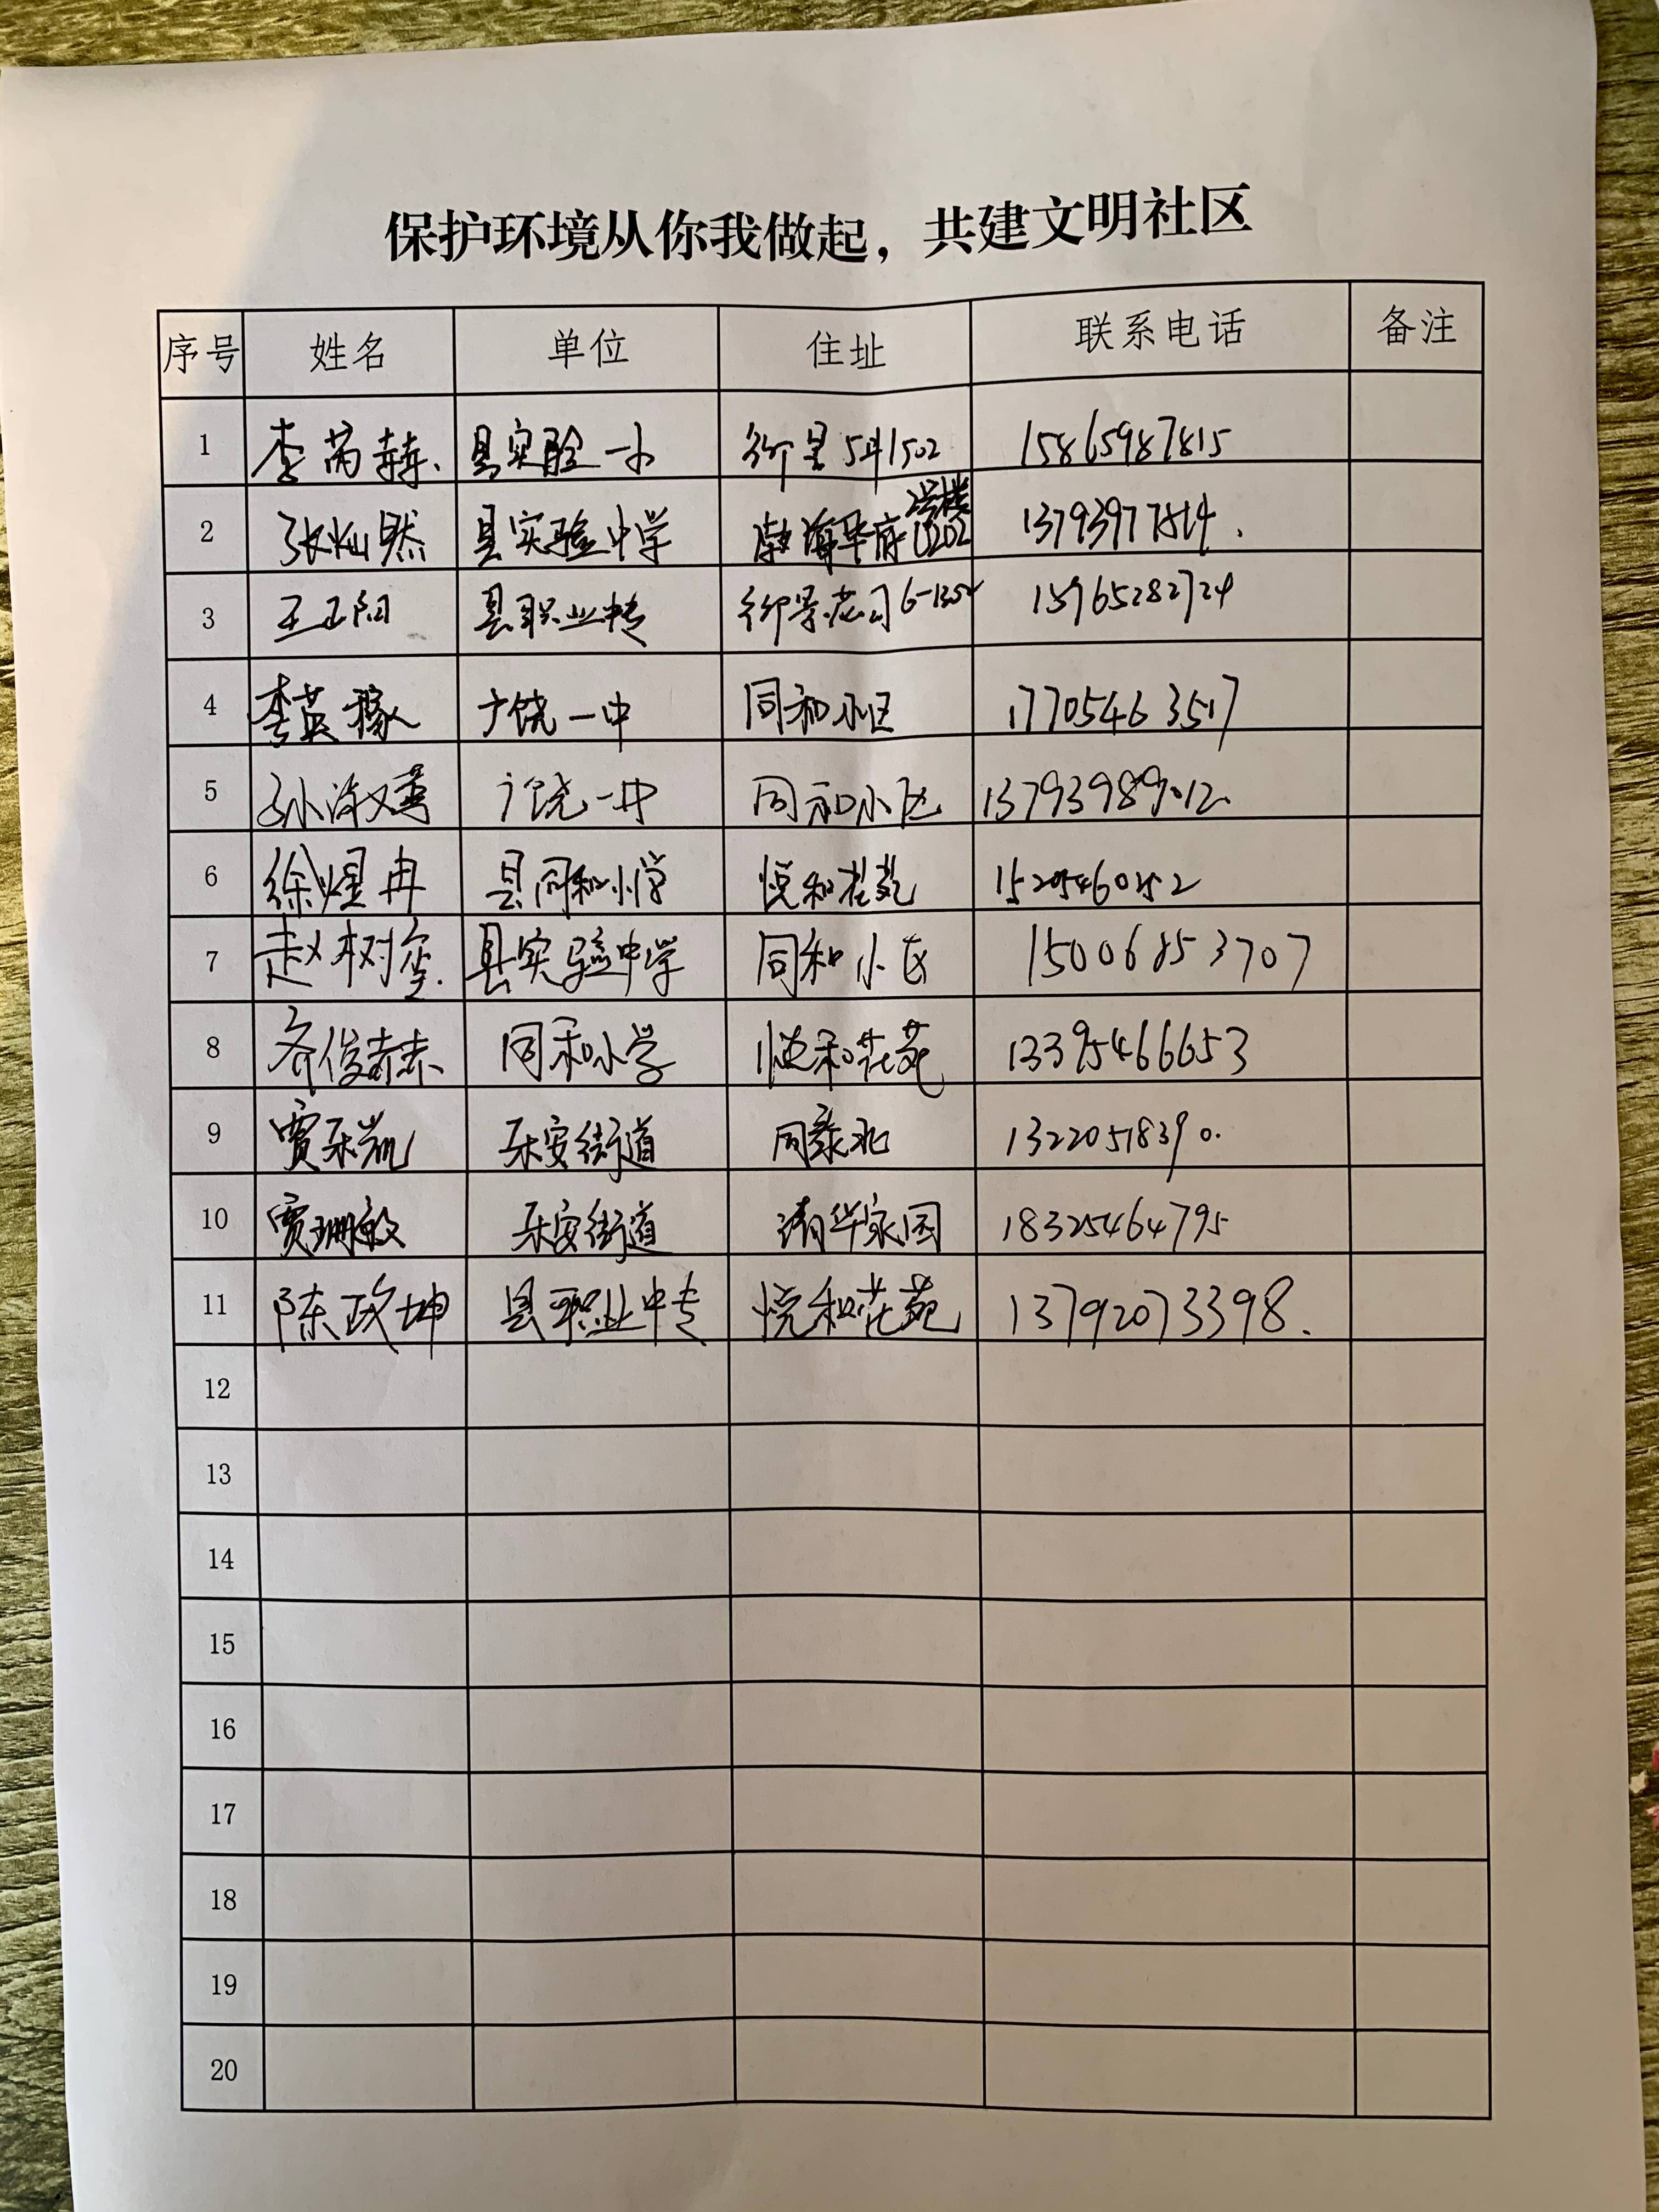 保护环境从你我做起，共建文明社区
序号 姓名 单位 住址 联系电话 备注
1 李芮赫 县实验一小 御景 1502 15865987815
2 张灿然 县实验中学 渤海华府2号楼1202 13793977814
3 王正阳 县职业中专 御景花园6- 15965282724
4 李英豫 广饶一中 同和小区 17705463517
5 孙 广饶一中 同和小区 13793989012
6 徐煜冉 县同和小学 悦和花苑
7 赵树奎 县实验中学 同和小区 15006853707
8 齐俊赫 同和小学 悦和花苑 13395466653
9 贾乐凯 乐安街道 同泰北 13220518390
10 贾珊敏 乐安街道 清华家园 18325464795
11 陈政坤 县职业中专 悦和花苑 13792073398
12
13
14
15
16
17
18
19
20